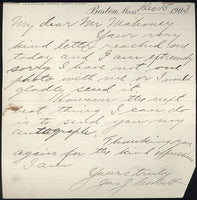 Boston, Mass. Dec 5 1903
My dear Mr Mahoney
Your very
kind letter reached me
today and I am extremely
sorry I have not a
photo with me or I would
gladly send it.
However the next
best thing, I consider
is to send you my
autograph.
Thanking you
again for the kind expression
I am
Yours truly
Jas J Corbett